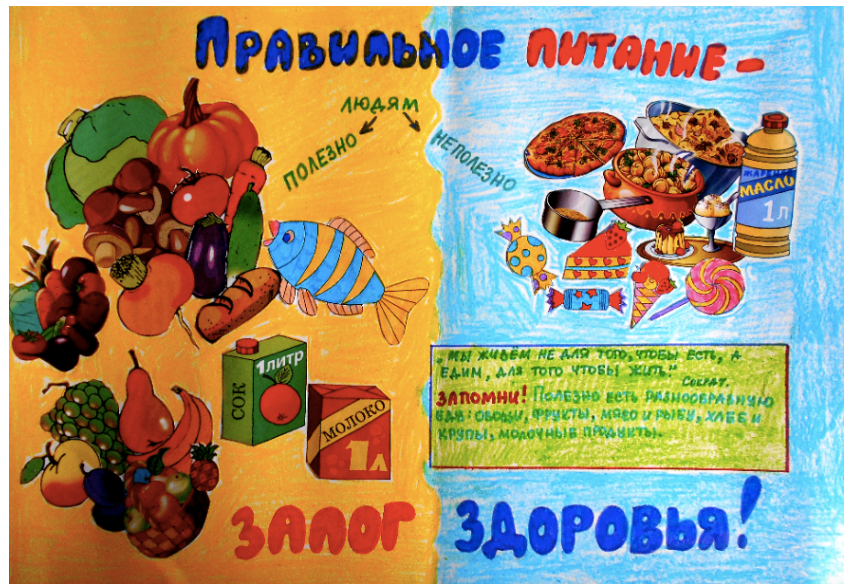 Правильное питание -
людям
полезно
неполезно
жайра
масло
1 л
1литр
сок
молоко
1 л
„Мы живём не для того, чтобы есть, а
едим, для того чтобы жить."
Сократ.
Запомни! Полезно есть разнообразную
еду: овощи, фрукты, мясо и рыбу, хлеб и
крупы, молочные продукты.
залог здоровья!